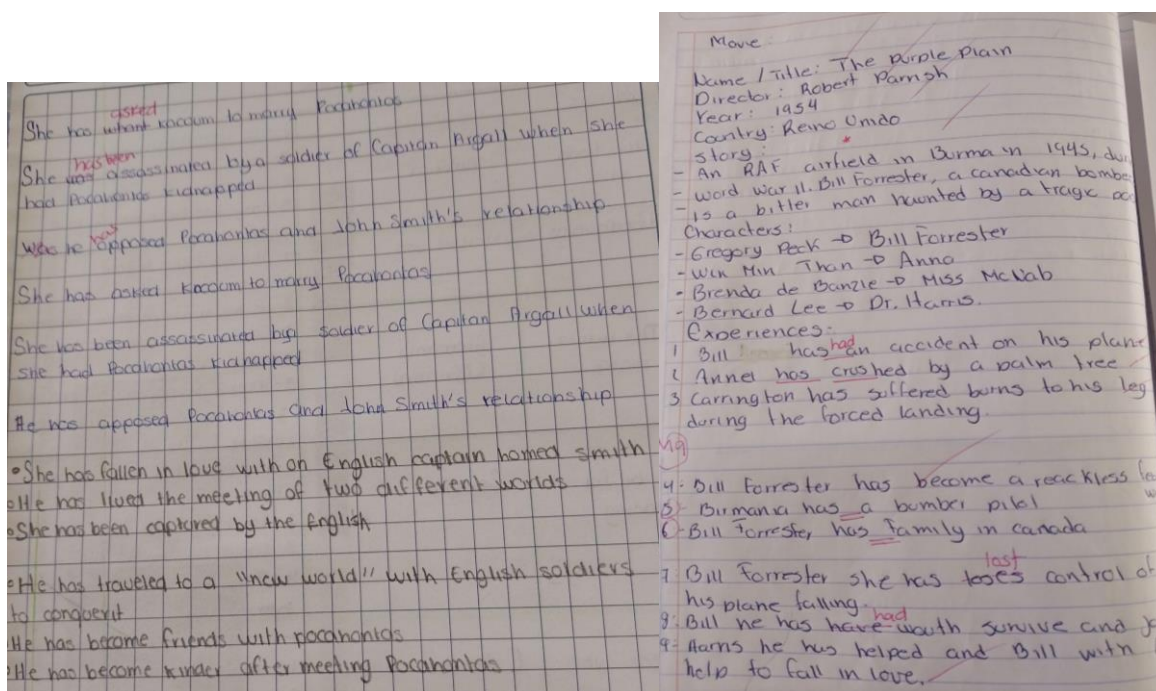 asked
She has whant Kocoum to marry Pocahontas
has been
She was assassinated by a soldier of Capitan Argall when she
had Pocahontas kidnapped
has
Was he opposed Pocahontas and John Smith's relationship
She has asked Kocoum to marry Pocahontas
She has been assassinated by soldier of Capitan Argall when
she had Pocahontas kidnapped
He has apposed Pocahontas and John Smith's relationship
She has fallen in love with an English captain named Smith
He has lived the meeting of two different worlds
She has been captured by the English
He has traveled to a "new world" with English soldiers
to conquer it
He has become friends with pocahontas
He has become kinder after meeting Pocahontas
Movie:
Name / Title: The purple plain
Director: Robert Parrish
Year: 1954
Country: Reino Unido
Story:
- An RAF airfield in Burma in 1945,
- word war II. Bill Forrester, a canadian
- is a bitter man haunted by a tragic
Characters:
- Gregory Peck → Bill Forrester
- Win Min Than → Anna
- Brenda de Banzie → Miss McNab
- Bernard Lee → Dr. Harris.
Experiences:
had
1 Bill has an accident on his plane
2 Annel has crushed by a palm tree
3 Carrington has suffered burns to his leg
during the forced landing.
4- Bill Forrester has become a reackless
5- Birmania has a bomber pilot
6- Bill Forrester has family in canada
lost
7 Bill Forrester she has looses control of
his plane falling.
had
8- Bill he has have survive and
9- Harris he has helped and Bill with
help to fall in love.